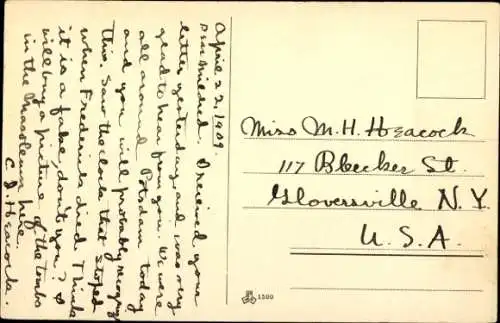 April 22, 1909.
Dear Mildred. I received your
letter yesterday, and was very
glad to hear from you. We were
all around Potsdam today
and you will probably recognize
this. Saw the clock that stoped
when Frederick died. I think
it is a fake, don't you? I
will buy a picture of the tombs
in the Mausoleum here.
C. J. Heacock.
Miss M. H. Heacock
117 Bleecker St.
Gloversville N. Y.
U. S. A.
1500